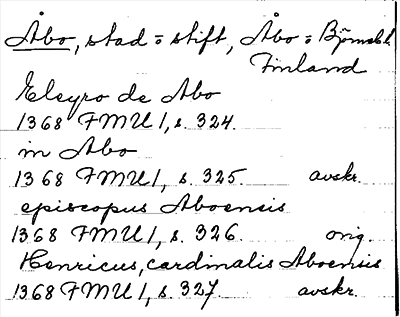 Åbo, stad = stift, Åbo = Björneb. l.
Finland
Elegro de Abo
1368 FMU I, s. 324.
in Abo
1368 FMU I, s. 325. avskr.
episcopus Aboensis
1368 FMU I, s. 326. orig.
Henricus, cardinalis Aboensis
1368 FMU I, s. 327. avskr.